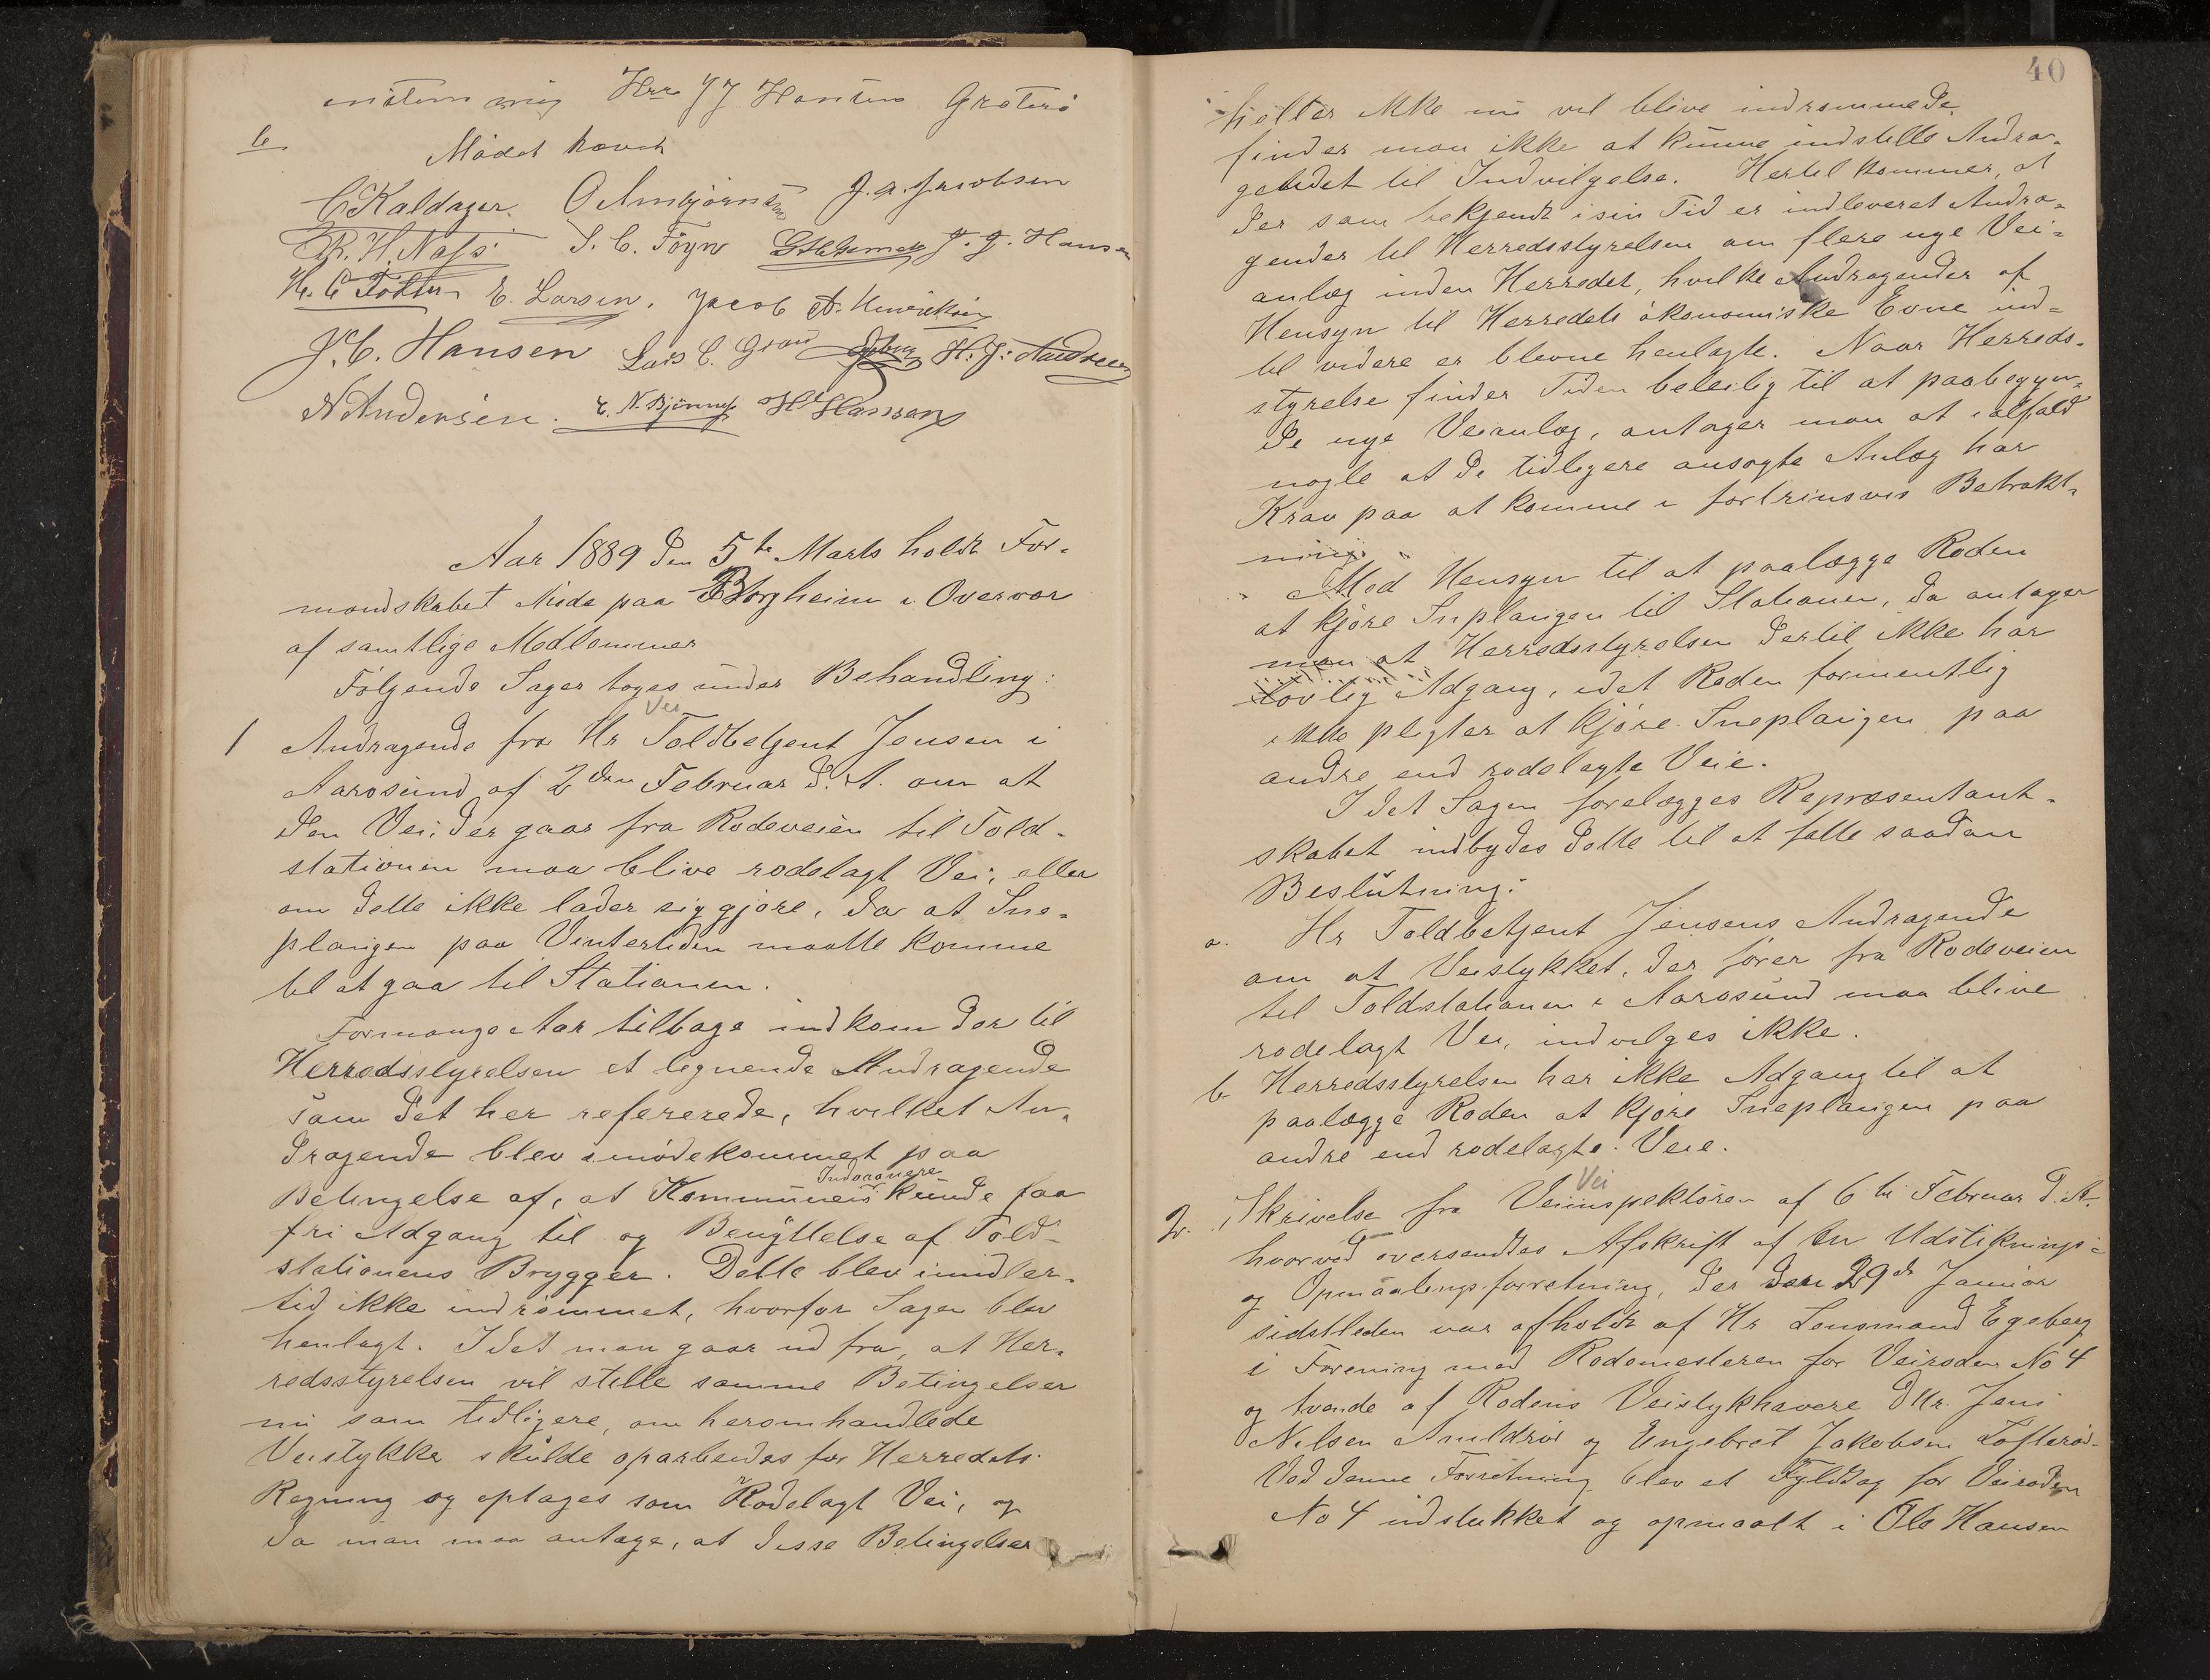 enstemmig Hrr J J Hansen Grøterø
6.
Mødet hævet
C Kaldager. O Arnbjørnsen J. A. Jacobsen
R. H. Nafs S. C. Föyn J. J. Hansen
H. C. E. Larsen. Jacob A. Henriksen
J. C. Hansen Lars C. Grav H. J. Andresen
N Andersen. E. N. H Hanssen
Aar 1889 den 5te Marts holdt For-
mandskabet Møde paa Borgheim i Overvær
af samtlige Medlemmer
Følgende Sager toges under Behandling:
Vei
1 Andragende fra Hr Toldbetjent Jensen i
Aarøsund af 2den Februar d. A. om at
den Vei, der gaar fra Rodeveien til Told-
stationen maa blive rodelagt Vei, eller
om dette ikke lader sig gjøre, da at Sne-
plougen paa Vintertiden maatte komme
til at gaa til Stationen.
For mange Aar tilbage indkom der til
Herredsstyrelsen et lignende Andragende
som det her refererede, hvilket An-
dragende blev imødekommet paa
Indvaanere
Betingelse af, at Kommunens kunde faa
fri Adgang til og Benyttelse af Told-
stationens Brygger. Dette blev imidler-
tid ikke indrømmet, hvorfor Sagen blev
henlagt. Idet man gaar ud fra, at Her-
redsstyrelsen vil stille samme Betingelser
nu som tidligere, om heromhandlede
Veistykke skulde oparbeides for Herredets
Regning og optages som Rodelagt Vei, og
da man maa antage, at disse Betingelser
40
heller ikke nu vil blive indrømmede,
finder man ikke at kunne indstille Andra-
gendet til Indvilgelse. Hertil kommer, at
der som bekjendt i sin Tid er indleveret Andra-
gender til Herredsstyrelsen om flere nye Vei-
anlæg inden Herredet, hvilke Andragender af
Hensyn til Herredets økonomiske Evne ind-
til videre er blevne henlagte. Naar Herreds-
styrelse finder Tiden beleilig til at paabegyn-
de nye Veianlæg, antager man at ialfald
nogle af de tidligere ansøgte Anlæg har
Krav paa at komme i fortrinsvis Betrakt-
ning.
Med Hensyn til at paalægge Roden
at kjøre Sneplougen til Stationen, da antager
man at Herredsstyrelsen dertil ikke har
lovlig Adgang, idet Roden formentlig
ikke pligter at kjøre Sneplougen paa
andre end rodelagte Veie.
Idet Sagen forelægges Repræsentant-
skabet indbydes dette til at fatte saadan
Beslutning:
a. Hr Toldbetjent Jensens Andragende
om at Veistykket, der fører fra Rodeveien
til Toldstationen i Aarøsund maa blive
rodelagt Vei, indvilges ikke.
b Herredsstyrelsen har ikke Adgang til at
paalægge Roden at kjøre Sneplougen paa
andre end rodelagte Veie.
Vei
2. Skrivelse fra Veiinspektøren af 6te Februar d. A.
hvorved oversendtes Afskrift af en Udstiknings-
og Opmaalingsforretning, der den 29de Januar
sidstleden var afholdt af Hr Lensmand Egeberg
i Forening med Rodemesteren for Veiroden No 4
og tvende af Rodens Veistykhavere DHr. Jens
Nilsen Amldrød og Engebret Jakobsen Lofterød.
Ved denne Forretning blev et Fyldtag for Veiroden
No 4 udstukket og opmaalt i Ole Hansen